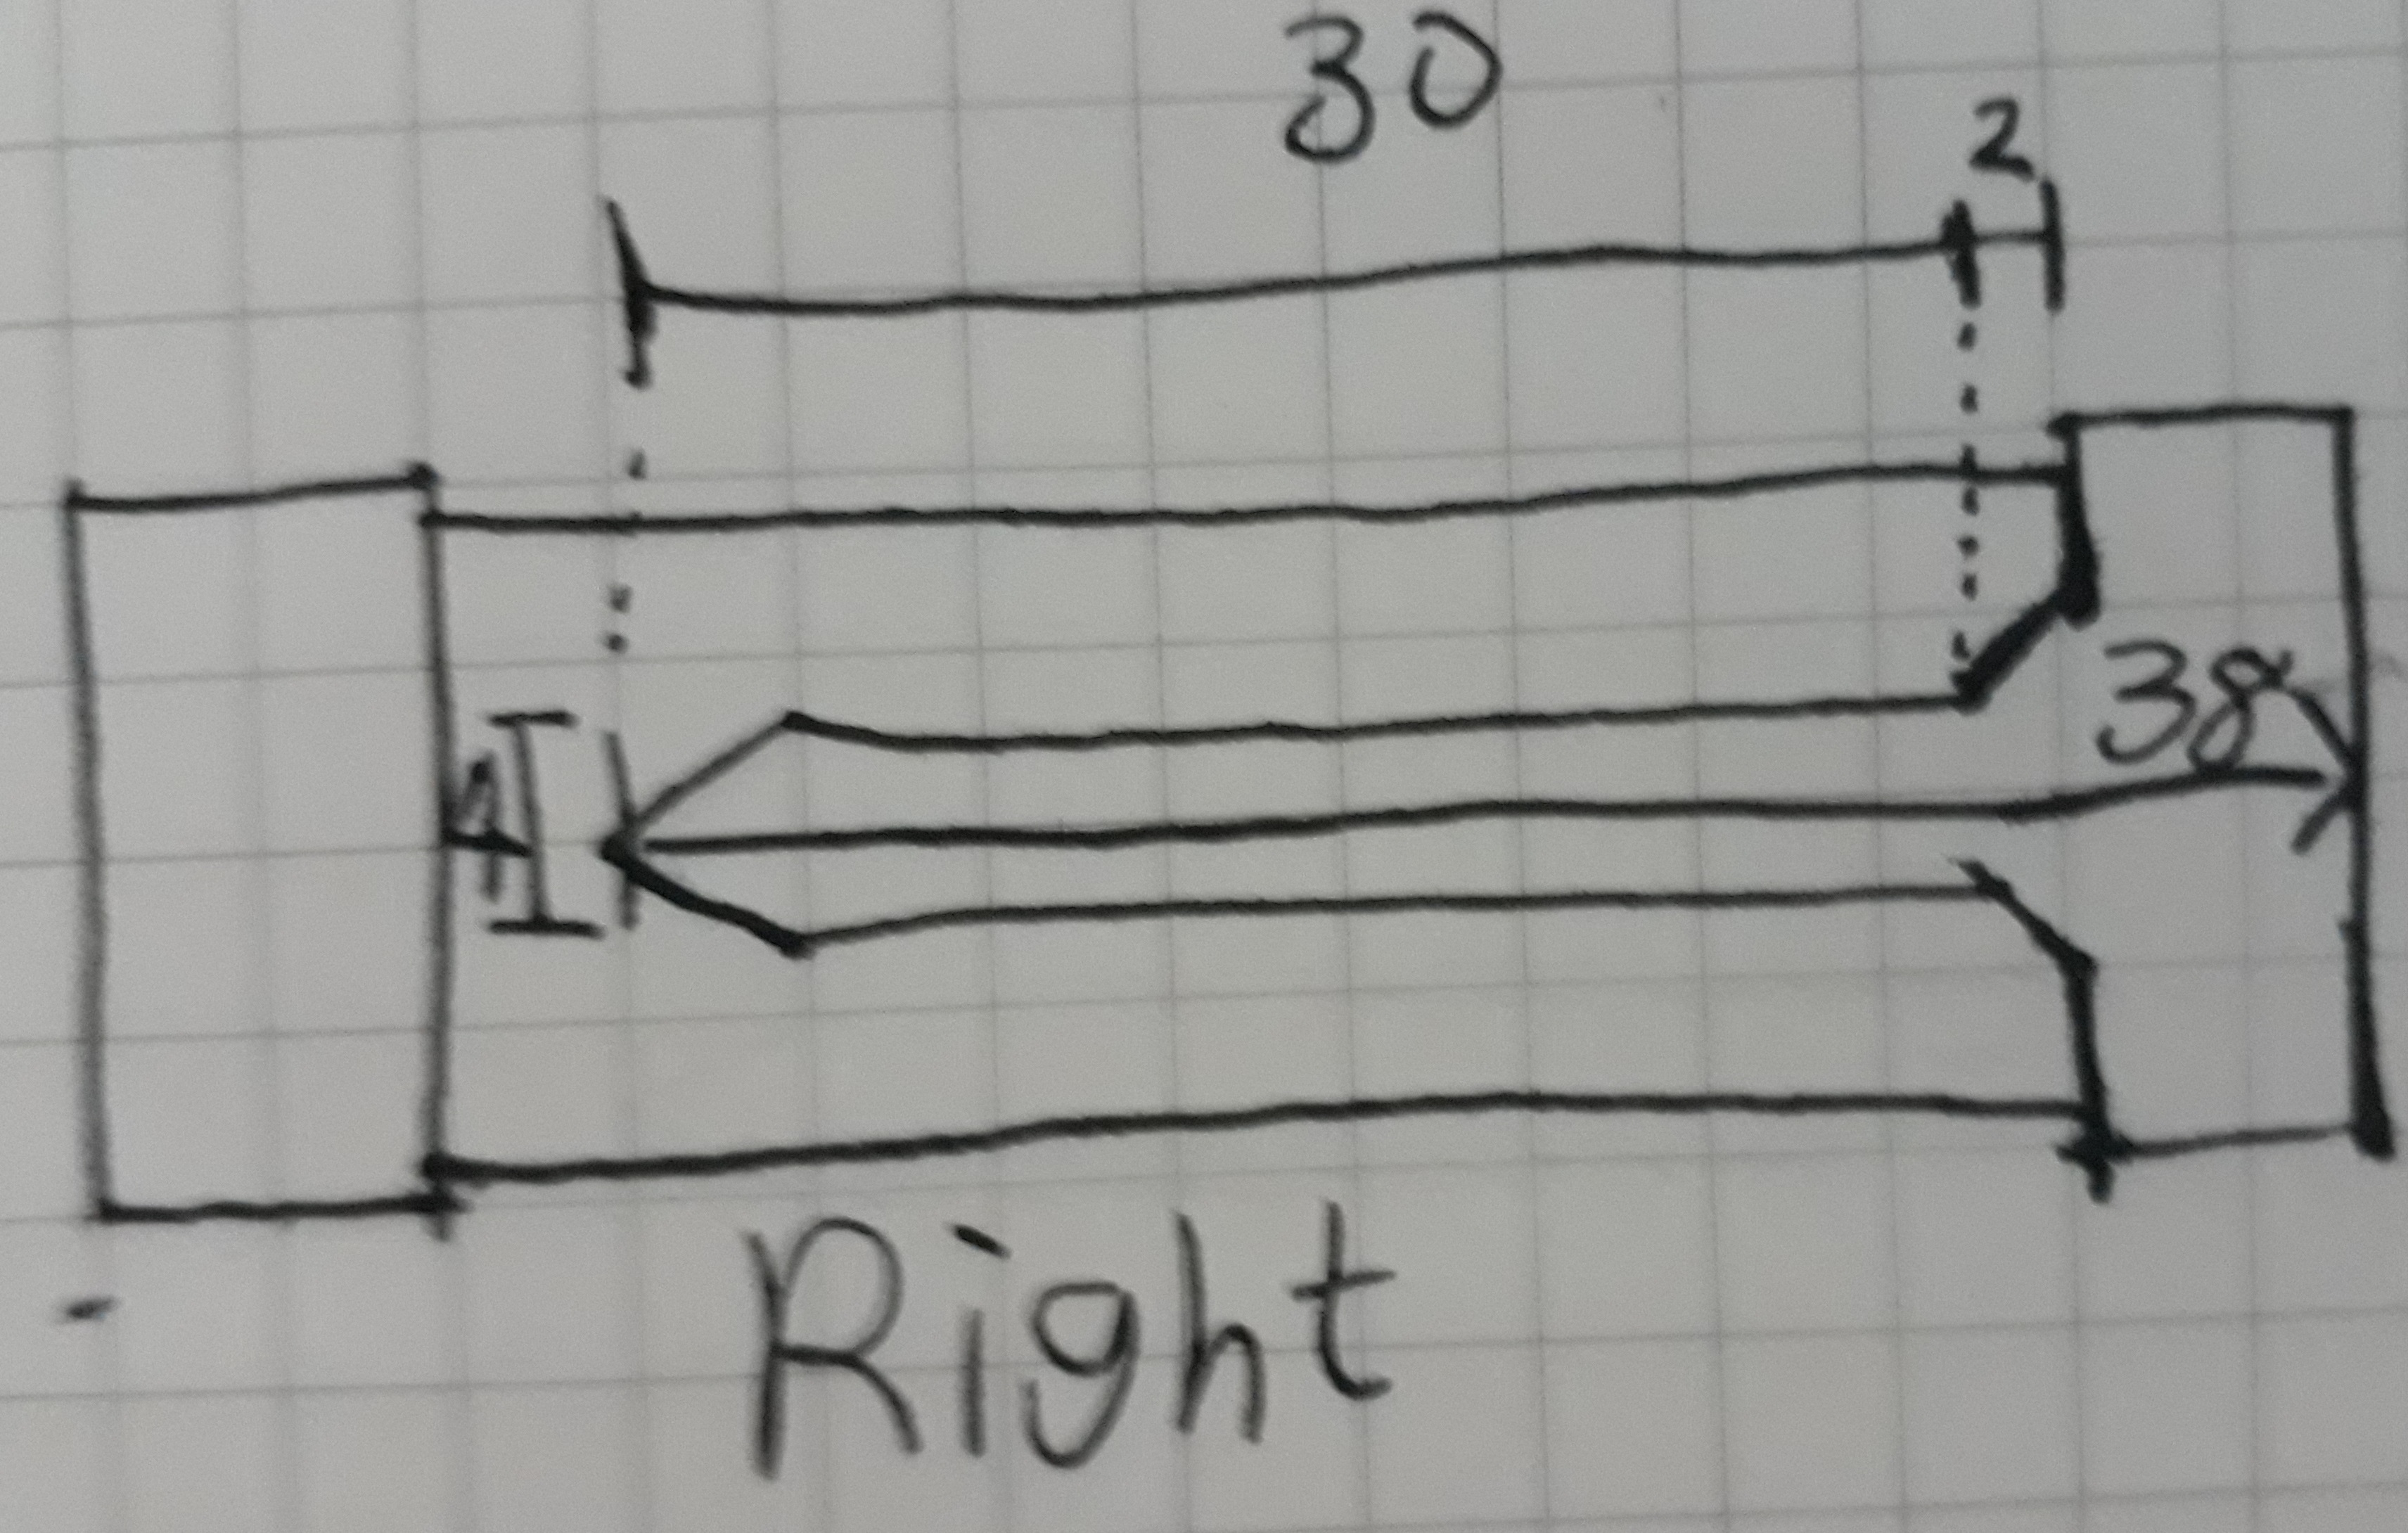 30
2
4
38
Right